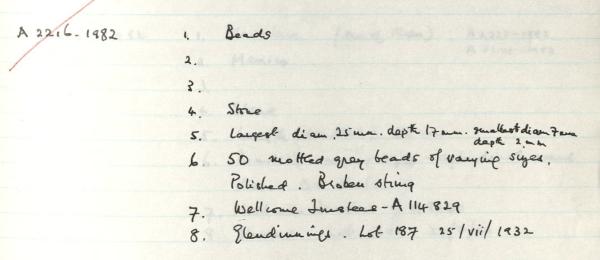 A 2216-1982 1. Beads
2.
3.
4. Stone
5. Largest diam. 25mm. depth 17mm. smallest diam 7mm
depth 2mm
6. 50 mottled grey beads of varying sizes.
Polished. Broken string
7. Wellcome Trustees - A 114829
8. Glendinnings. Lot 187 25/vii/1932